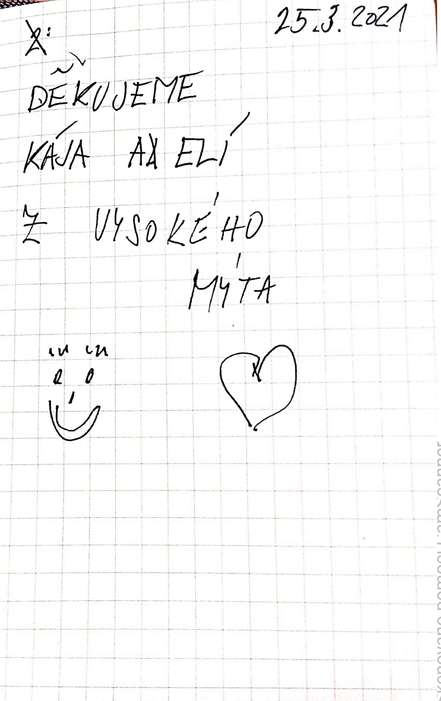 25.3.2021
DĚKUJEME
KÁJA A ELÍ
Z VYSOKÉHO
MÝTA